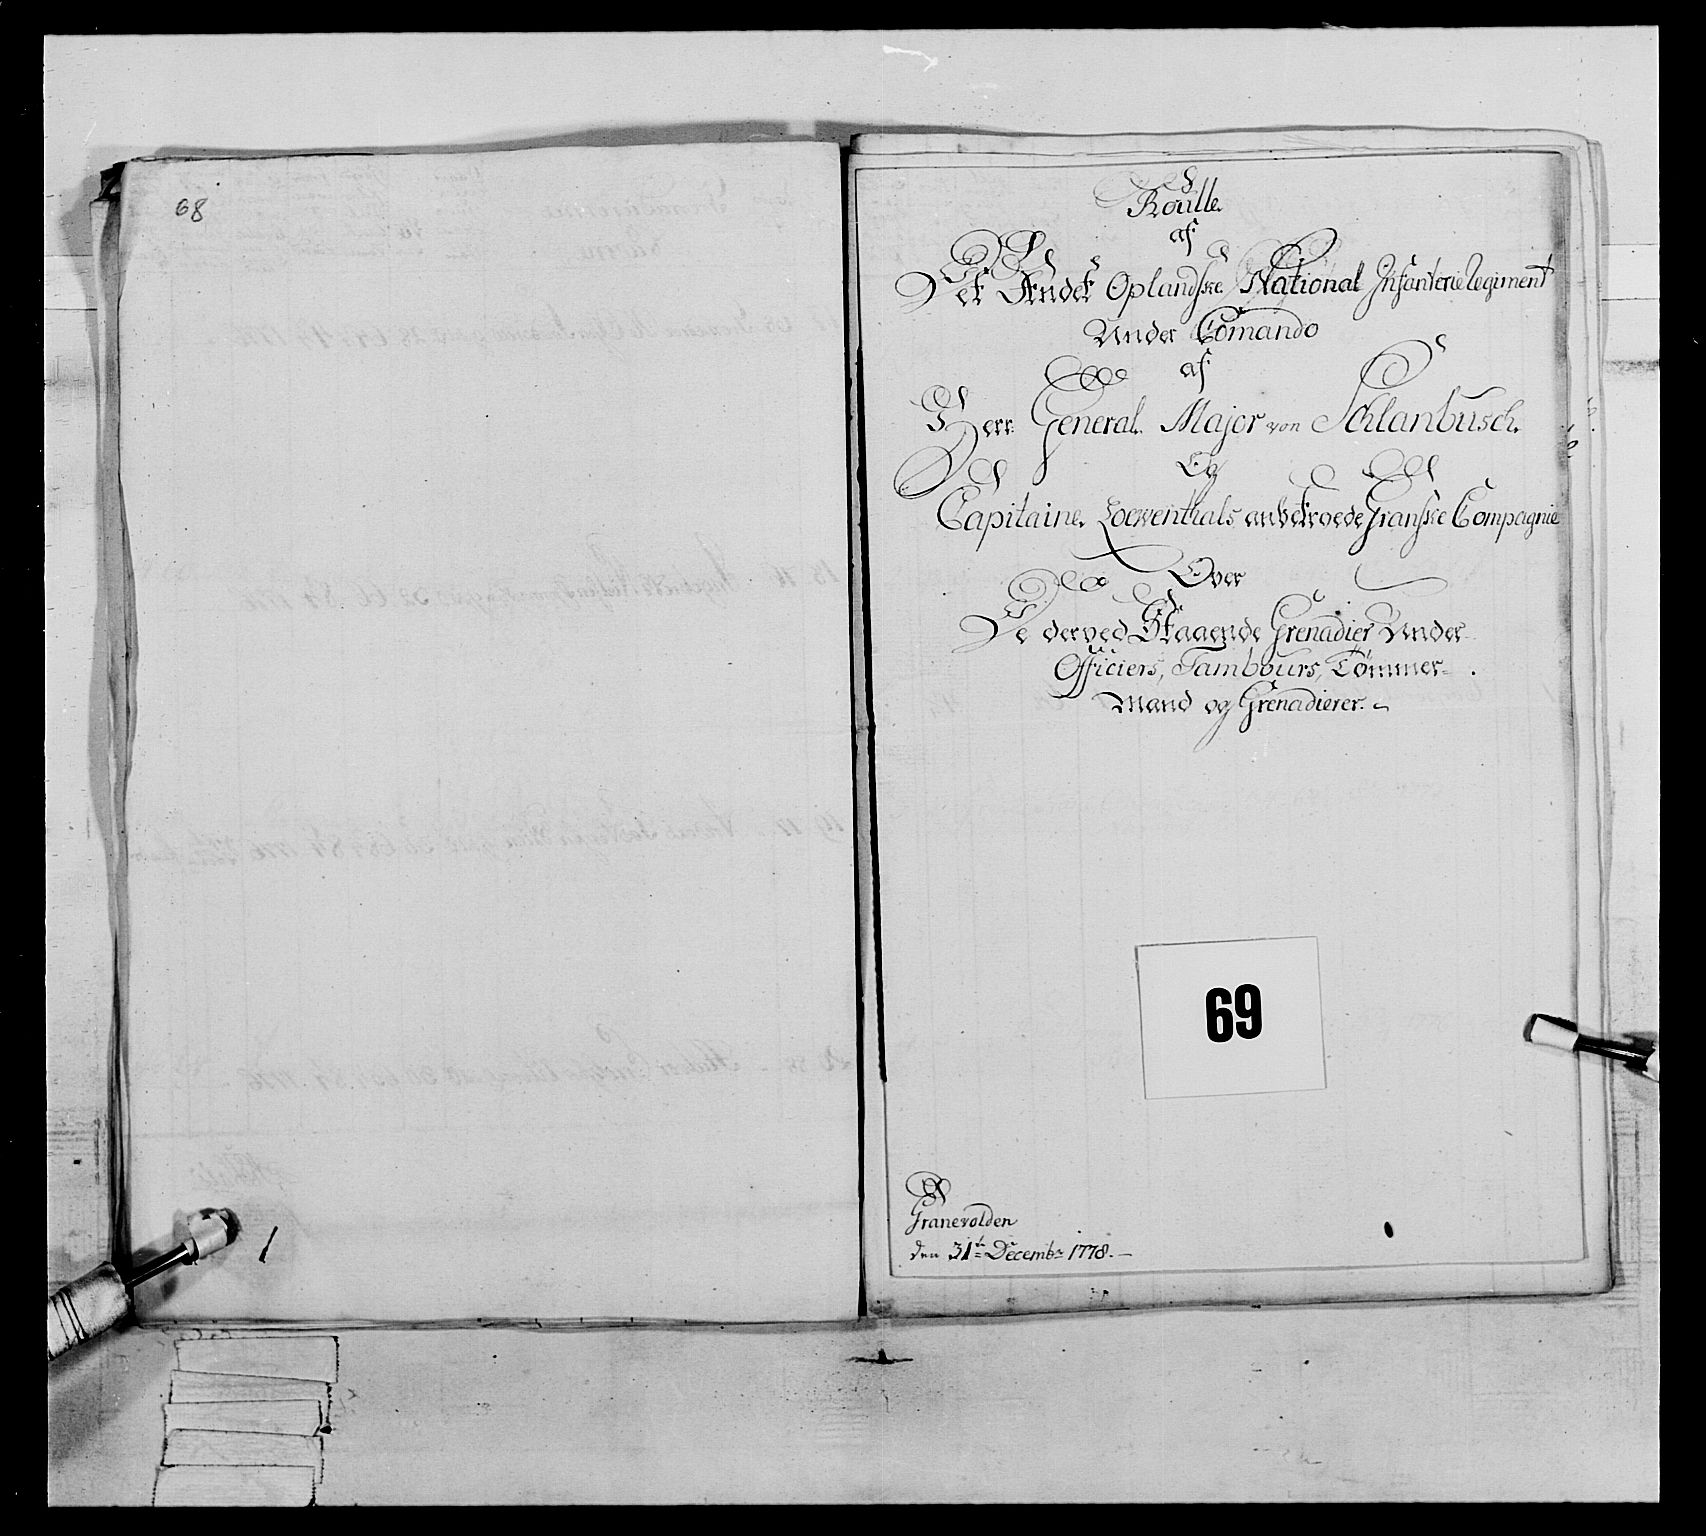 68
Roulle
af
Det Andet Oplandske National Infanterie Regiment
Under Comando
af
Herr General Major von Schlanbusch.
Og
Capitaine Loewenthals anbetroede Granske Compagnie
Over
De derved Staaende Grenadier Under
Officiers, Tambours, Tømmer-
Mand og Grenadierer.
69
Granevolden
den 31te Decembr 1778.